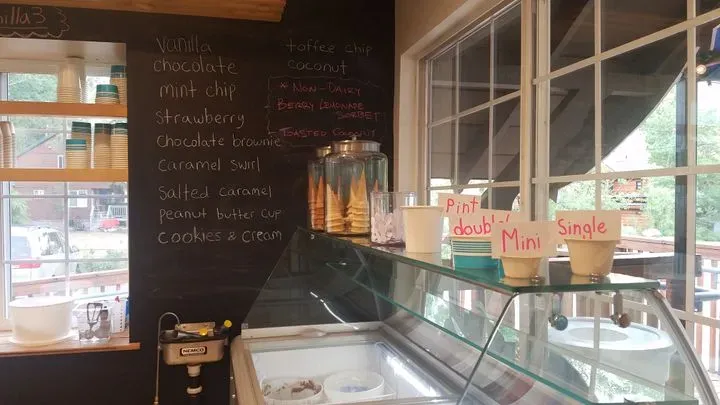 illa3
vanilla
chocolate
mint chip
strawberry
chocolate brownie
caramel swirl
salted caramel
peanut butter cup
cookies & cream
toffee chip
coconut
* NON-DAIRY
- BERRY LEMONADE
SORBET
- TOASTED COCONUT
Pint
double
Mini
Single
NEMCO